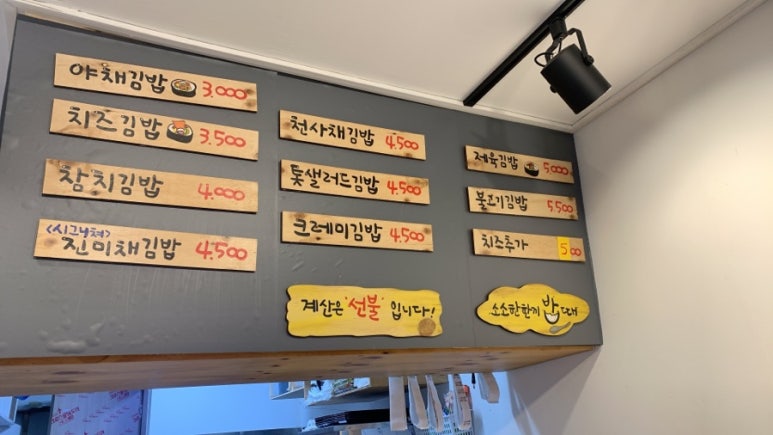 야채김밥 3.000
치즈김밥 3.500
참치김밥 4.000
<시그니쳐>
진미채김밥 4.500
천사채김밥 4.500
톳샐러드김밥 4.500
크레미김밥 4.500
제육김밥 5.000
불고기김밥 5.500
치즈추가 500
계산은 "선불" 입니다!
소소한한끼 밥때